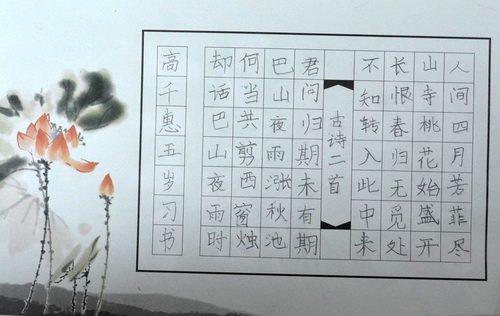 人间四月芳菲尽
山寺桃花始盛开
长恨春归无觅处
不知转入此中来
古诗二首
君问归期未有期
巴山夜雨涨秋池
何当共剪西窗烛
却话巴山夜雨时
高千惠五岁习书